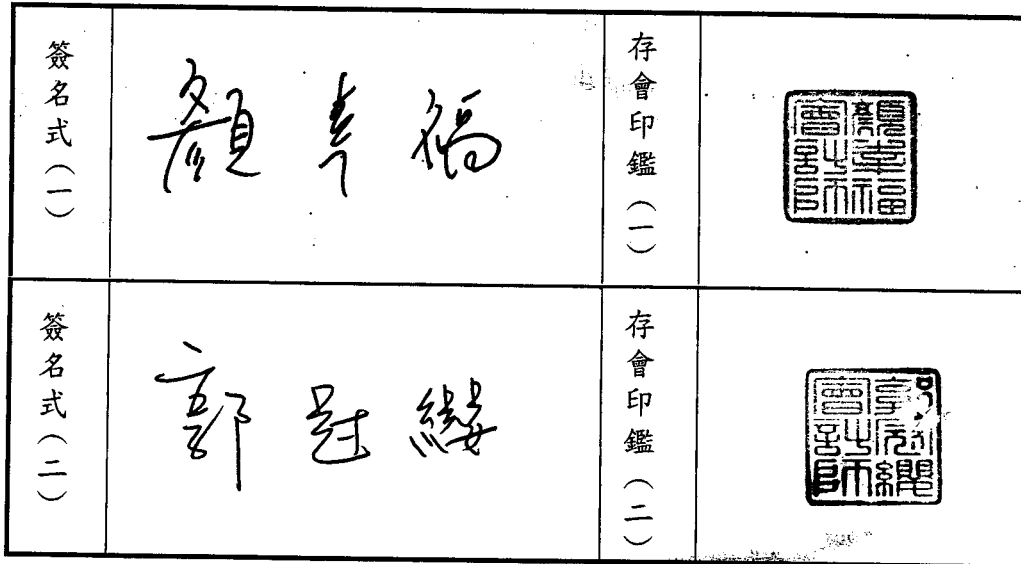 簽名式（一）
顏幸福
存會印鑑（一）
顏幸福會計師
簽名式（二）
郭冠纓
存會印鑑（二）
郭冠纓會計師